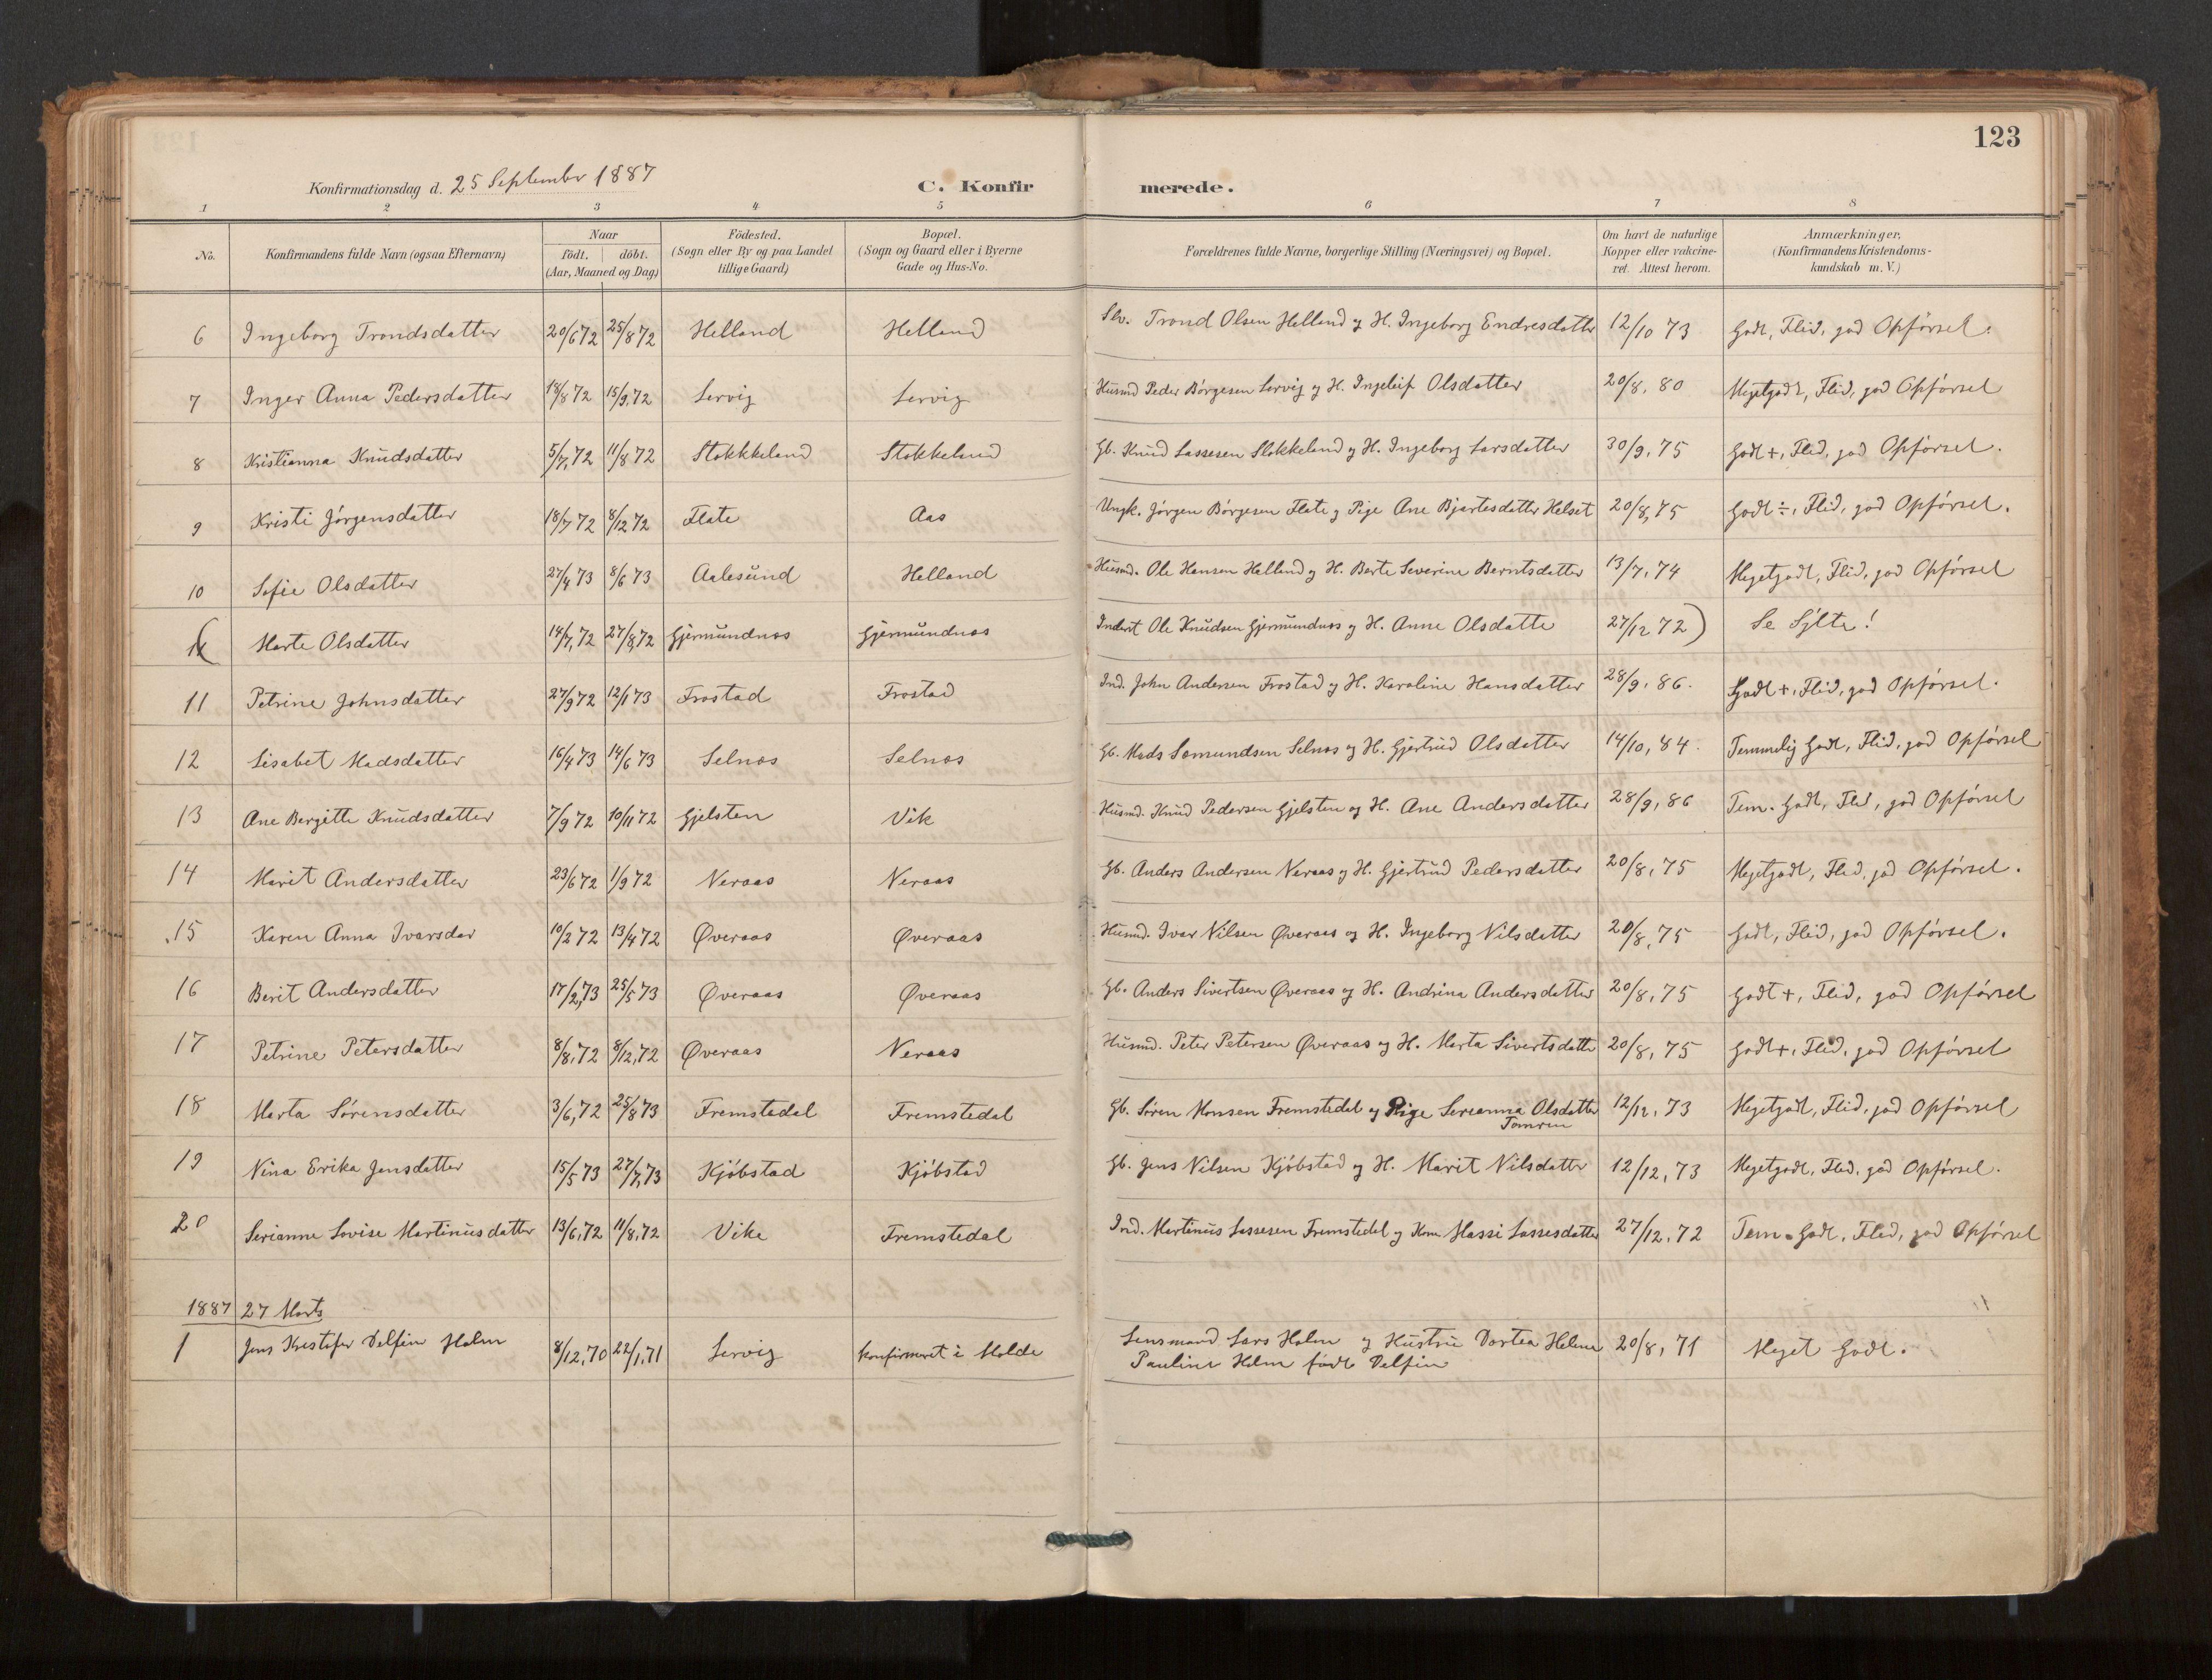 123
Konfirmationsdag d. 25 September 1887 C. Konfir merede.
1 2 3 4 5 6 7 8
No. Konfirmandens fulde Navn (ogsaa Efternavn) Naar födt. döbt. (Aar, Maaned og Dag) Födested. (Sogn eller By og paa Landet tillige Gaard) Bopæl. (Sogn og Gaard eller i Byerne Gade og Hus-No. Forældrenes fulde Navne, borgerlige Stilling (Næringsvei) og Bopæl. Om havt de naturlige Kopper eller vakcineret. Attest herom. Anmærkninger, (Konfirmandens Kristendomskundskab m. V.)
6 Ingeborg Trondsdatter 20/6 72 25/8 72 Helland Helland Trond Olsen Helland og H. Ingeborg Endresdatter 12/10 73 Godt, Flid, god Opförsel.
7 Inger Anna Pedersdatter 18/8 72 15/9, 72 Sorvig Sorvig Husmd Peder Börgesen Sorvig og H. Ingeleif Olsdatter 20/8, 80 Megetgodt, Flid, god Opförsel
8 Kristianna Knudsdatter 5/7, 72 11/8 72 Stokkeland Stokkeland Gb. Knud Lassesen Stokkeland og H. Ingeborg Larsdatter 30/9, 75 Godt +, Flid, god Opförsel.
9 Kristi Jörgensdatter 18/7 72 8/12 72 Flate Aas Ungk. Jörgen Börgesen Flate og Pige Ane Bjartesdatter Helset 20/8, 75 Godt ÷, Flid, god Opförsel.
10 Sofie Olsdatter 27/4 73 8/6 73 Aalesund Helland Husmd. Ole Hansen Helland og H. Berte Severine Berntsdatter 13/7, 74 Megetgodt, Flid, god Opförsel
( Marte Olsdatter 14/7, 72 27/8, 72 Gjermundnes Gjermundnes Inderst Ole Knudsen Gjermundnes og H. Anne Olsdatte 27/12 72) Se Sylte!
11 Petrine Johnsdatter 27/9 72 12/1 73 Frostad Frostad Ind. John Andersen Frostad og H. Karoline Hansdatter 28/9, 86. Godt +, Flid, god Opförsel.
12 Lisabet Madsdatter 16/4 73 14/6 73 Selnes Selnes Gb. Mads Samundsen Selnes og H. Gjertrud Olsdatter 14/10, 84. Temmelig Godt, Flid, god Opförsel
13 Ane Bergitte Knudsdatter 7/9 72 10/11 72 Gjelsten Vik Husmd. Knud Pedersen Gjelsten og H. Ane Andersdatter 28/9, 86 Tem. Godt, Flid, god Opförsel
14 Marit Andersdatter 23/6 72 1/9 72 Neraas Neraas Gb. Anders Andersen Neraas og H. Gjertrud Pedersdatter 20/8, 75 Megetgodt, Flid, god Opförsel.
15 Karen Anna Ivarsdar 10/2 72 13/4 72 Øveraas Øveraas Husmd. Ivar Nilsen Øveraas og H. Ingeborg Nilsdatter 20/8, 75 Godt, Flid, god Opförsel.
16 Berit Andersdatter 17/2, 73 25/5 73 Øveraas Øveraas Gb. Anders Sivertsen Øveraas og H. Andrina Andersdatter 20/8, 75 Godt +, Flid, god Opförsel
17 Petrine Petersdatter 8/8, 72 8/12, 72 Øveraas Neraas Husmd. Peter Petersen Øveraas og H. Marta Sivertsdatte 20/8, 75 Godt +, Flid, god Opförsel
18 Marta Sörensdatter 3/6, 72 25/8 73 Fremstedal Fremstedal Gb. Sören Monsen Fremstedal og Pige Serianna Olsdatter Tomren 12/12, 73 Megetgodt, Flid, god Opförsel
19 Nina Erika Jensdatter 15/5 73 27/7, 73 Kjöbstad Kjöbstad Gb. Jens Nilsen Kjöbstad og H. Marit Nilsdatter 12/12, 73 Megetgodt, Flid, god Opförsel.
20 Serianne Lovise Martinusdatter 13/6, 72 11/8, 72 Vike Fremstedal Ind. Martinus Lassesen Fremstedal og Kone Massi Lassesdatter 27/12, 72 Tem. Godt, Flid, god Opförsel
1887 27 Marts
1 Jens Kristofer Delfin Holm 8/12, 70 22/1, 71 Sorvig konfirmeret i Molde Lensmand Lars Holm og Hustru Dortea Helene 20/8, 71 Meget Godt.
Pauline Holm födt Delfin